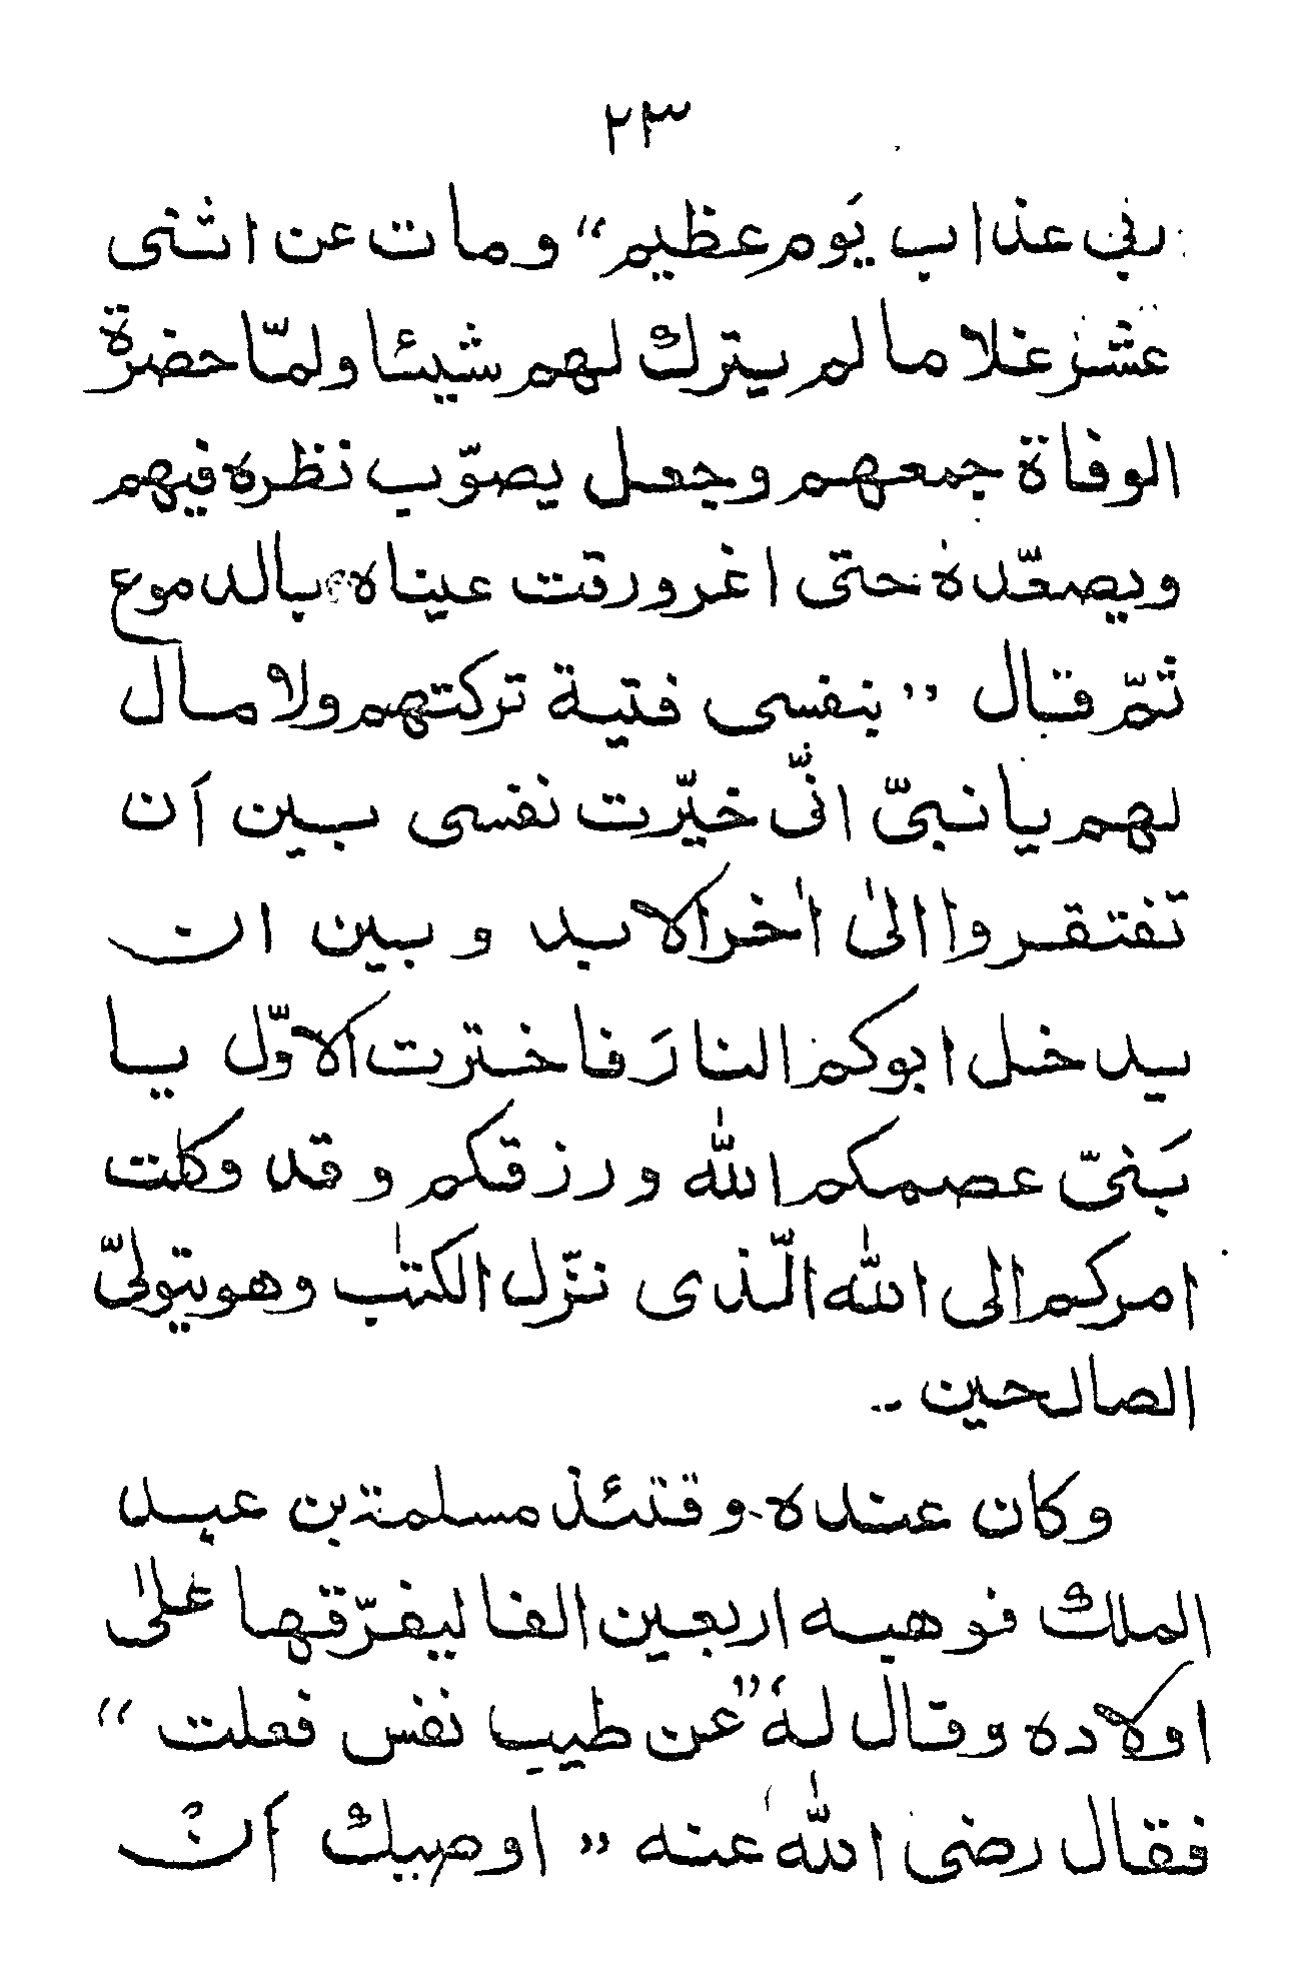 ٢٣
ربي عذاب يَوم عظيم“ ومات عن اثنى
عشر غلاما لم يترك لهم شيئا ولمّا حضرة
الوفاة جمعهم وجعل يصوّب نظره فيهم
ويصعّده حتى اغرورقت عيناه بالدموع
ثمّ قال ” بنفسى فتية تركتهم ولا مال
لهم يا نبىّ انّى خيّرت نفسى بين اَن
تفتقروا الىٰ اٰخر الابد وبين ان
يدخل ابوكم النارَ فاخترت الاوّل يا
بَنىّ عصمكم اللّٰه ورزقكم وقد وكلت
امركم الى اللّٰه الّذى نزّل الكتٰب وهو يتولىّ
الصالحين -.
وكان عنده وقتئذ مسلمة بن عبد
الملك فوهبه اربعين الفا ليفرّقها علىٰ
اولاده وقال لهٗ ”عن طيب نفس فعلت “
فقال رضى اللّٰه عنه ” اوصيك اَن